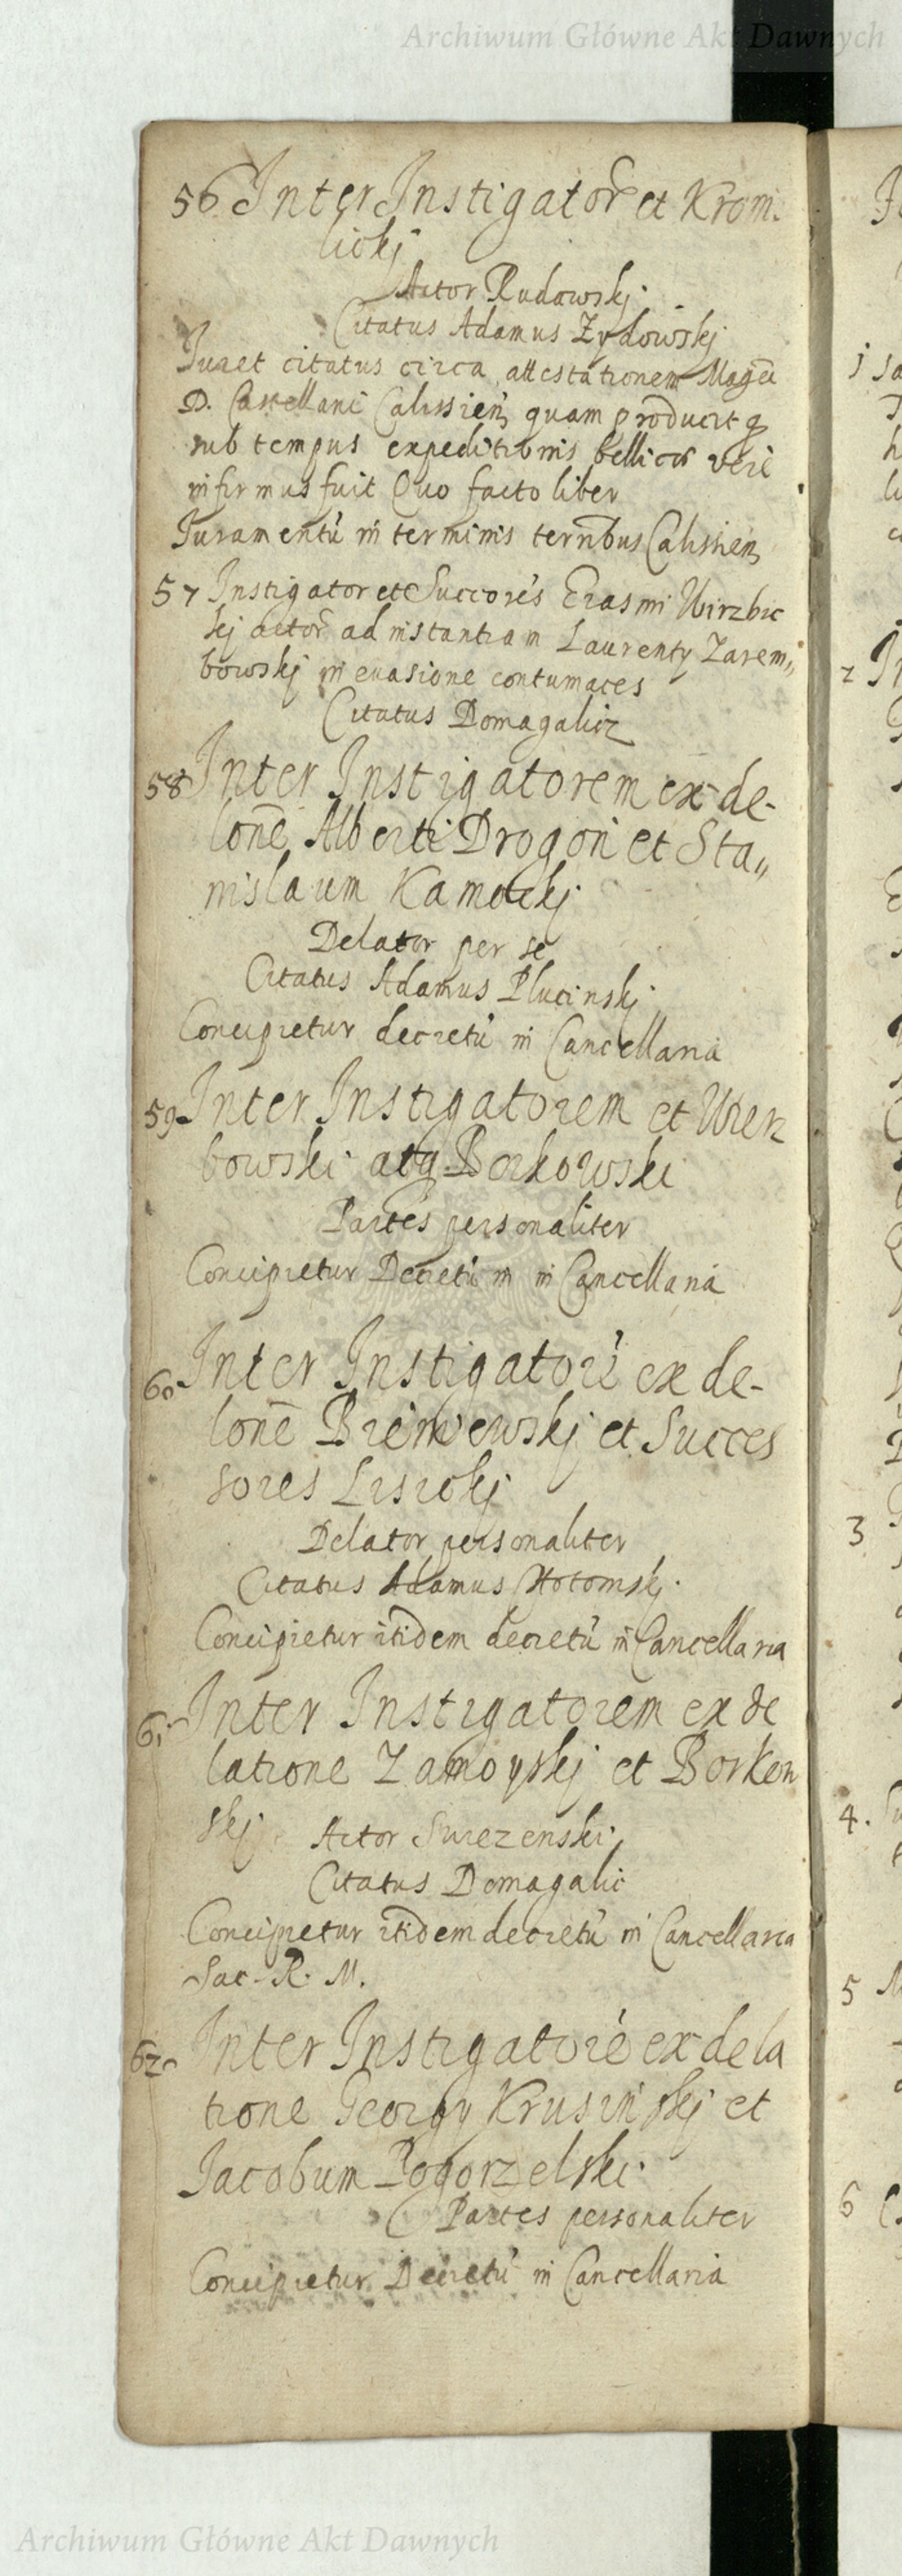 Archiwum Główne Akt Dawnych
56 Inter Instigator̃ et Krom.
lickj
Actor Rudowskj.
Citatus Adamus Zydowskj
Iuret citatus circa attestationem Magci
D. Castellani Calissień quam producit q
sub tempus expeditionis bellicae vere
infirmus fuit Quo facto liber
Iuramentú in terminis terr̃bus Calissień
57 Instigator et Succorés Erasmi Wirzbic
kj actor̃ ad instantiam Laurenty Zarem„
bowskj in euasione contumaces
Citatus Domagalicz
58 Inter Instigatorem ex de-
lonẽ Alberti Drogoń et Sta„
nislaum Kamockj
Delator per se
Citatus Adamus Plucinskj
Concipietur decretú in Cancellaria
59 Inter Instigatorem et Wierz
bowski atq Borkowski
Partes personaliter
Concipietur Decretú in in Cancellaria
60 Inter Instigatoré ex de-
lonẽ et Succes
sores Lisickj
Delator personaliter
Citatus Adamus
Concipietur itidem decretú in Cancellaria
61 Inter Instigatorem ex de
latione Zamoyskj et Borkow
skj Actor
Citatus Domagalic
Concipietur itidem decretú in Cancellaria
Sac. R. M.
62 Inter Instigatoré ex dela
tione Georgy Krusińskj et
Iacobum Pogorzelski
Partes personaliter
Concipietur Decretú in Cancellaria
1
2
3
4.
5
6
Archiwum Główne Akt Dawnych